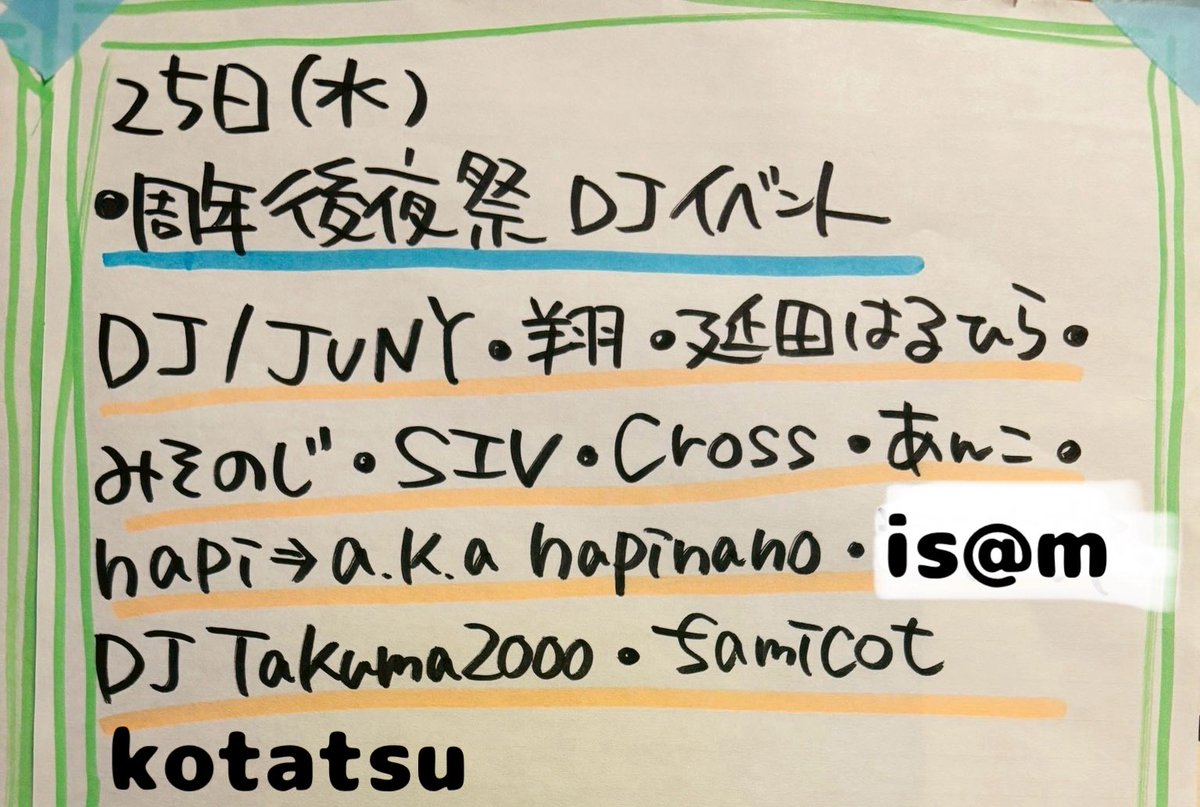 25日(水)
•周年後夜祭 DJイベント
DJ/JUNY•翔•延田はるひら•
みそのじ•SIV•Cross•あんこ•
hapi⇒a.k.a hapinano・is@m
DJ Takuma2000•famicot
kotatsu